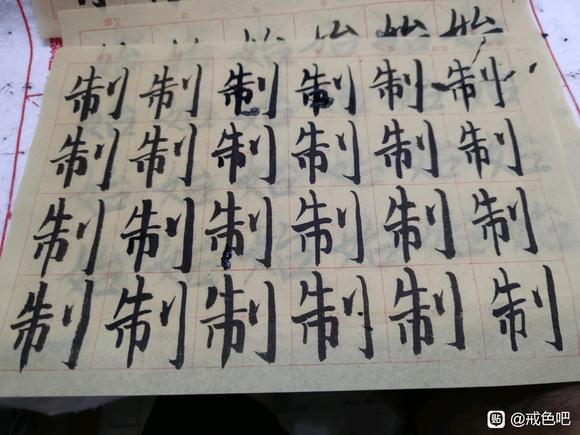 始始始始
制制制制制制
制制制制制制
制制制制制制
制制制制制制
贴 @戒色吧